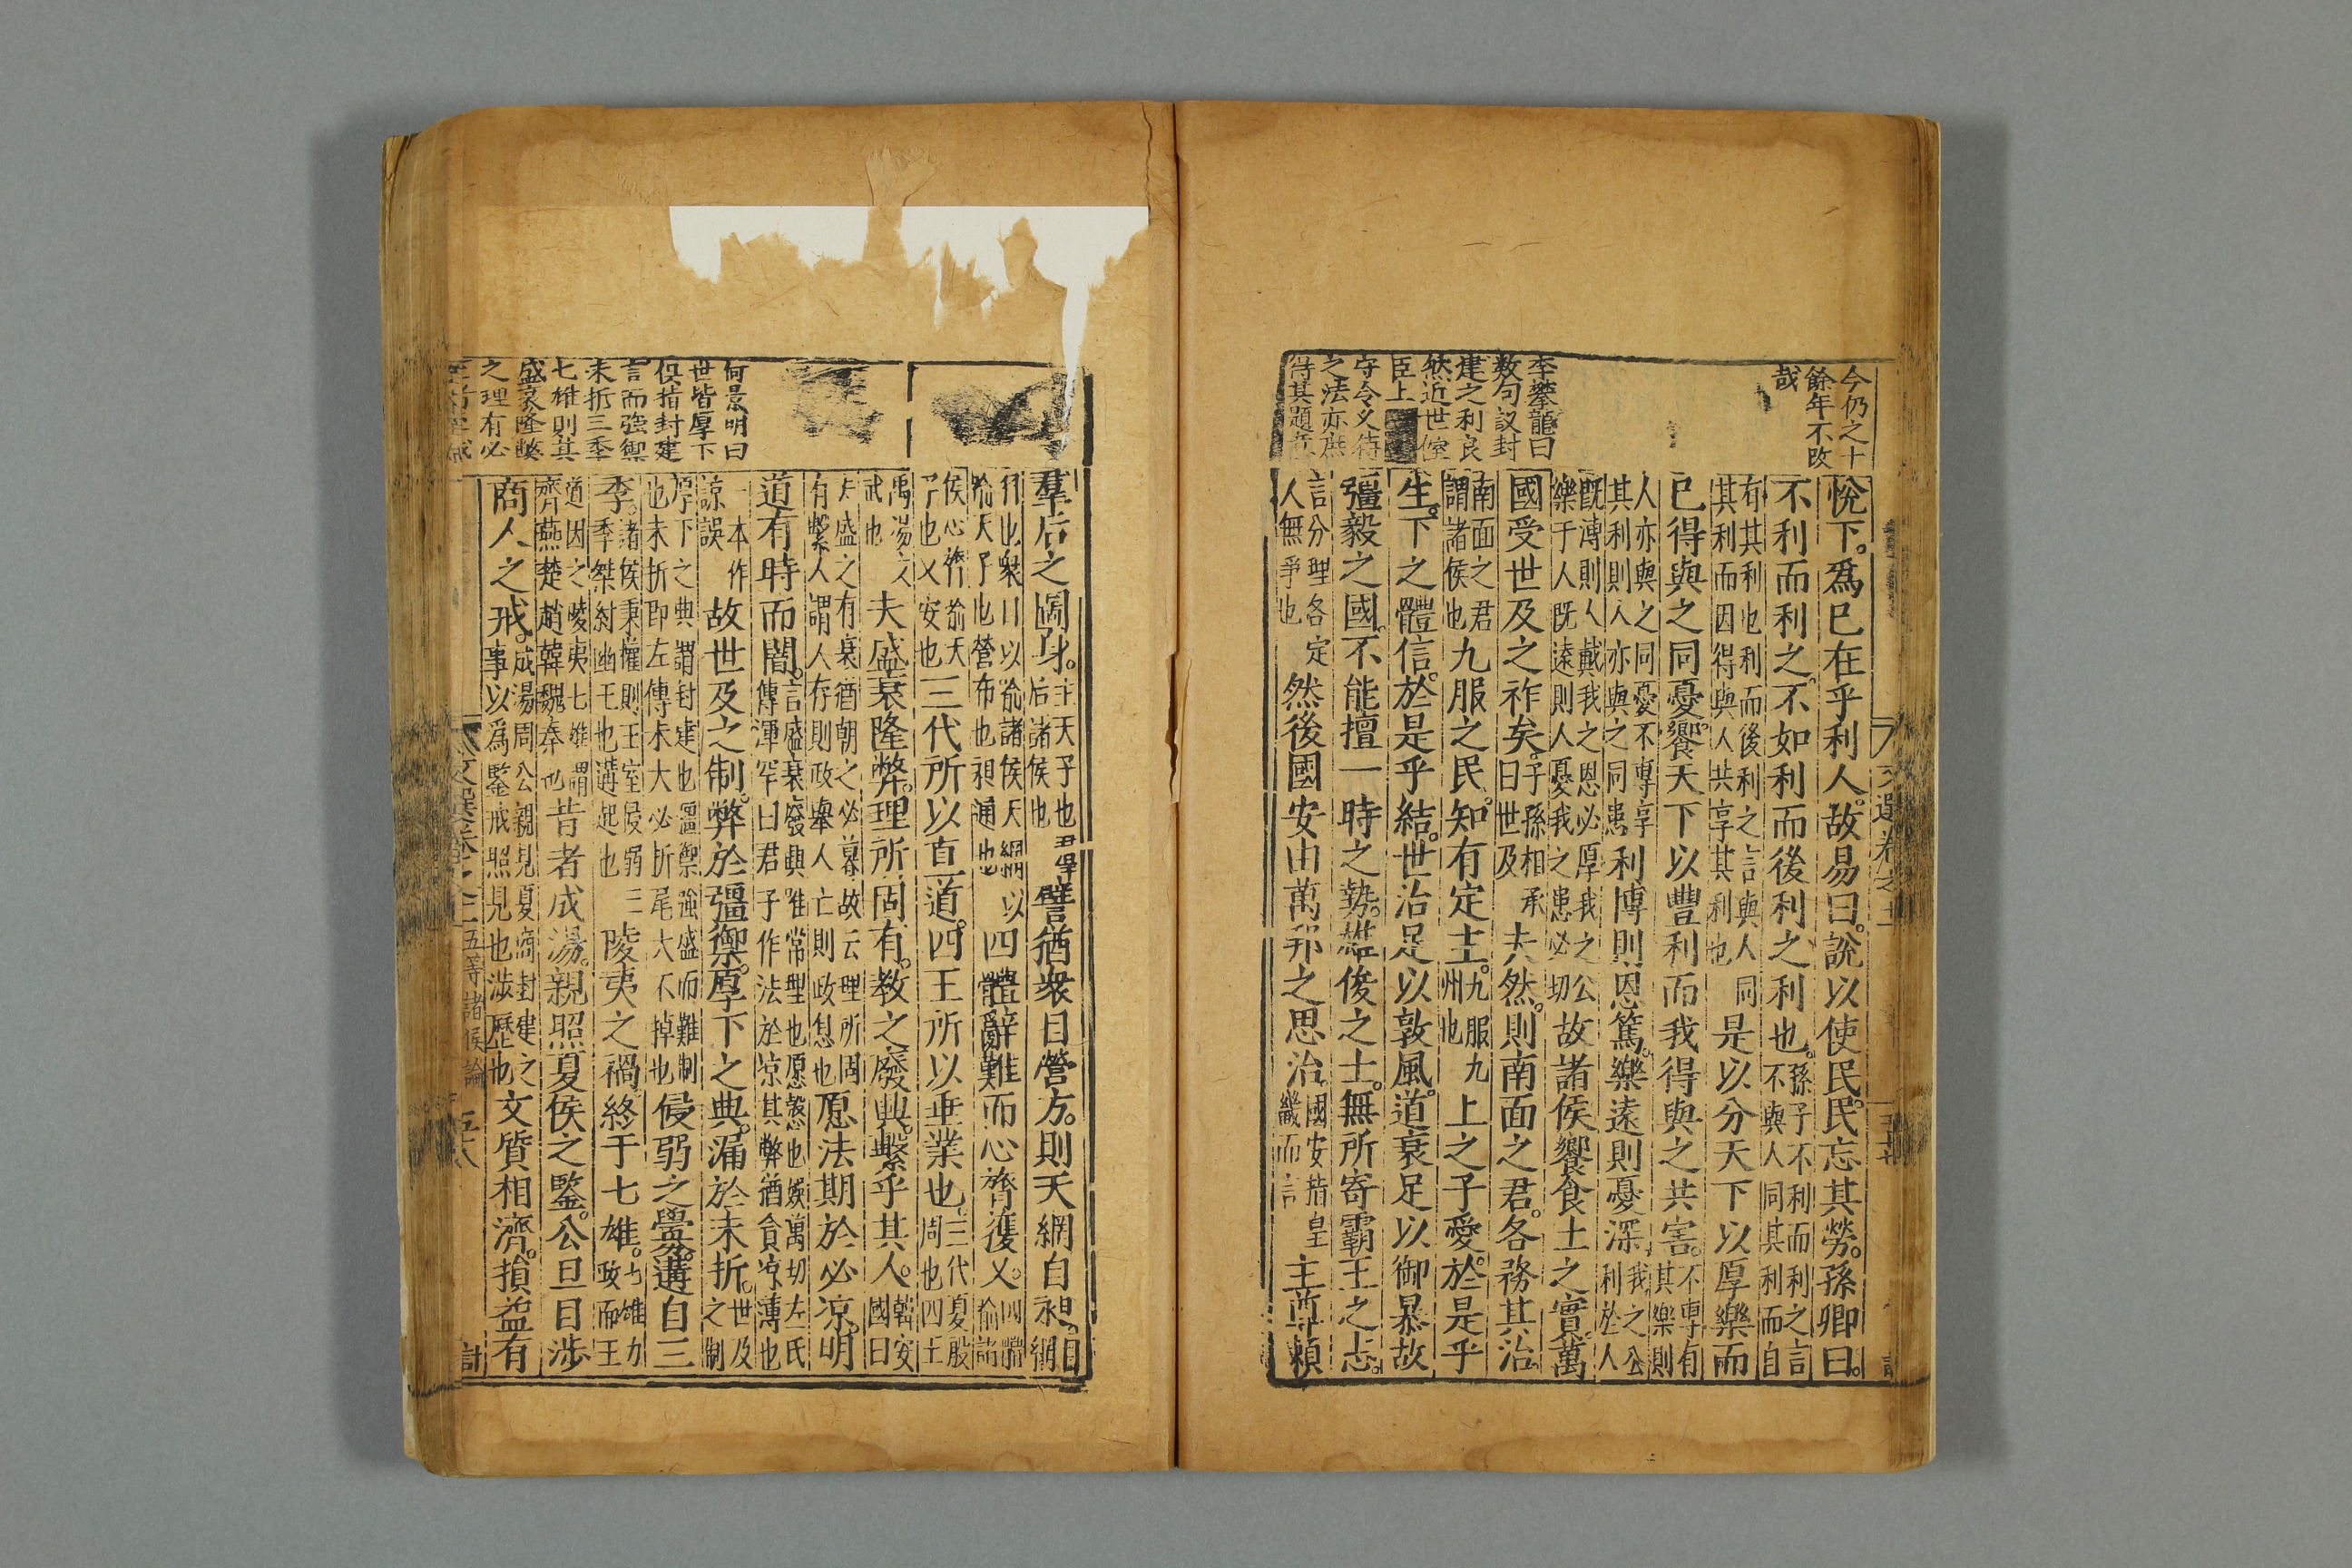 今仍之十
餘年不改
哉
李攀龍曰
数句議封
建之利良
然近世
臣上
守令又待
之法亦庶
得其題意
悅下。爲已在乎利人。故易曰。說以使民。民忘其勞。孫卿曰。
不利而利之。不如利而後利之利也。孫子不利而利之言不與人同其利而自
有其利也利而後利之言與人同其利而因得與人共享其利也是以分天下以厚樂而
已得與之同憂。饗天下以豐利而我得與之共害。不專有其樂則
人亦與之同憂不專享其利則人亦與之同害利博則恩篤。樂遠則憂深。我之公利於人
既溥則人戴我之恩必厚我之公樂于人既遠則人憂我之患必切故諸侯饗食土之實。萬
國受世及之祚矣。子孫相承曰世及夫然。則南面之君。各務其治。
南面之君謂諸侯也九服之民。知有定主。九服九州也上之子愛。於是乎
生。下之體信。於是乎結。世治足以敦風。道衰足以御暴。故
彊毅之國。不能擅一時之勢。雄俊之士。無所寄霸王之志。
言分理各定人無爭也然後國安由萬邦之思治。國安措皇畿而言主尊賴
群后之圖身。主天子也后諸侯也譬猶衆目營方。則天網自昶。目網
目也衆目以喻諸侯天網喻天子也營布也昶通也以四體辭難而心膂獲乂。四體喻諸
侯心膂喻天子也乂安也三代所以直道。四王所以垂業也。三代夏殷周也四王
禹湯文武也夫盛衰隆弊。理所固有。教之廢興。繫乎其人。韓安國曰
夫盛之有衰猶朝之必暮故云理所固有繫人謂人存則政舉人亡則政息也愿法期於必凉。明
道有時而闇。言盛衰廢興雖常理也愿慤也左氏傳渾罕曰君子作法於凉其弊猶貪凉薄也
一本作諒誤故世及之制。弊於彊禦。厚下之典。漏於末折。世及之制
厚下之典謂封建也彊禦強盛而難制也末折即左傳末大必折尾大不掉也侵弱之釁。遘自三
季。諸侯秉權則王室侵弱三季桀紂幽王也遘起也陵夷之禍終于七雄。七雄力政而王
道因之陵夷七雄謂齊燕楚趙韓魏秦也昔者成湯。親照夏侯之鑒。公旦目涉
商人之戒。成湯周公親見夏商封建之事以爲鑒戒照見也涉歷也文質相濟。損益有
何景明曰
世皆厚下
俱指封建
言而強禦
末折三季
七雄則其
盛衰隆弊
之理有必
五等諸侯論